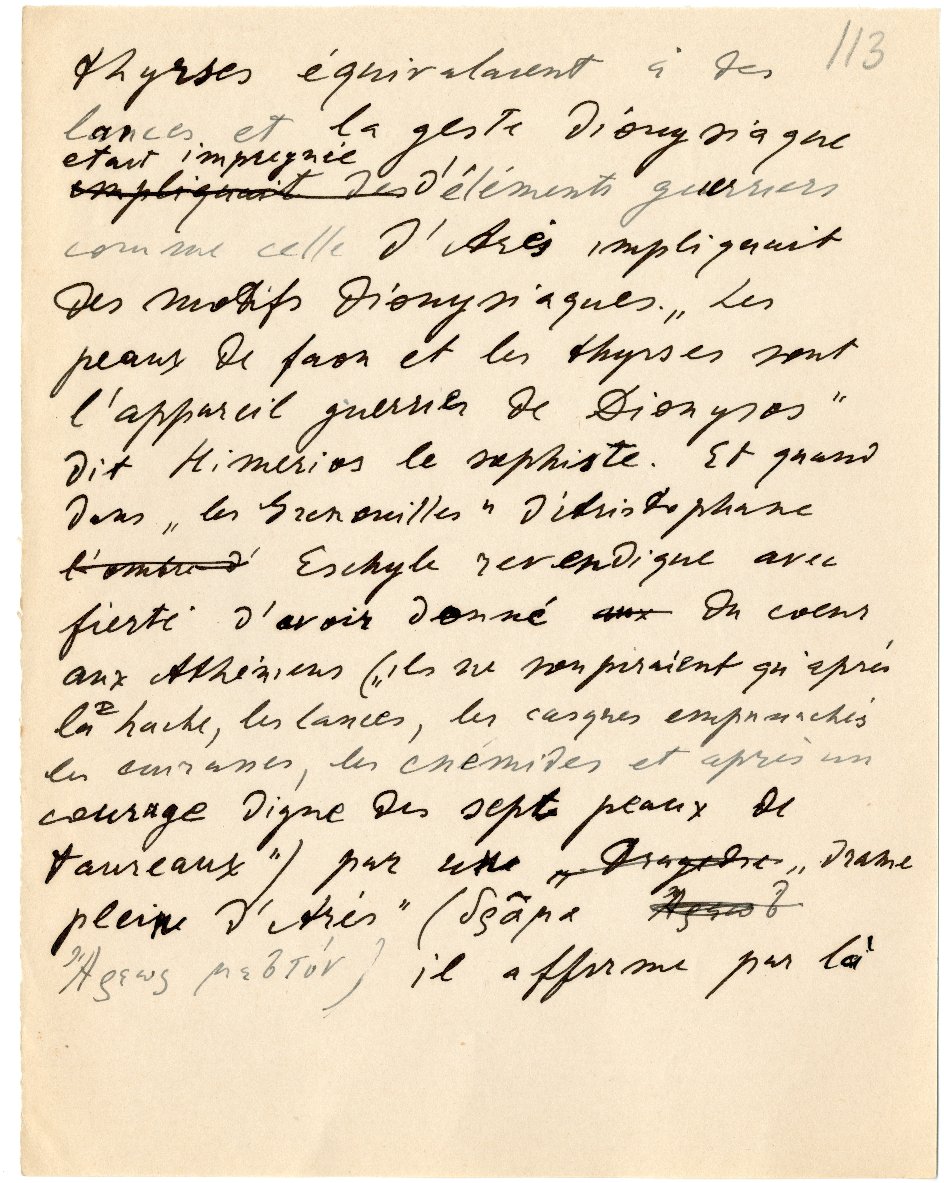 113
thyrses équivalaient à des
lances et la geste dionysiaque
etait impregnée
impliquait des d'éléments guerriers
comme celle d'Arès impliquait
des motifs dionysiaques. „Les
peaux de faon et les thyrses sont
l'appareil guerrier de Dionysos"
dit Himerios le sophiste. Et quand
dans „les Grenouilles" d'Aristophane
l'ombre d' Eschyle revendique avec
fierté d'avoir donné aux du coeur
aux Athéniens („ils ne soupiraient qu'après
la hache, les lances, les casques empanachés
les cuirasses, les cnémides et après un
courage digne des sept peaux de
taureaux") par une „Dragedie „drame
pleine d'Arès" (δρᾶμα Ἄρεως
Ἄρεως μεστόν) il affirme par là